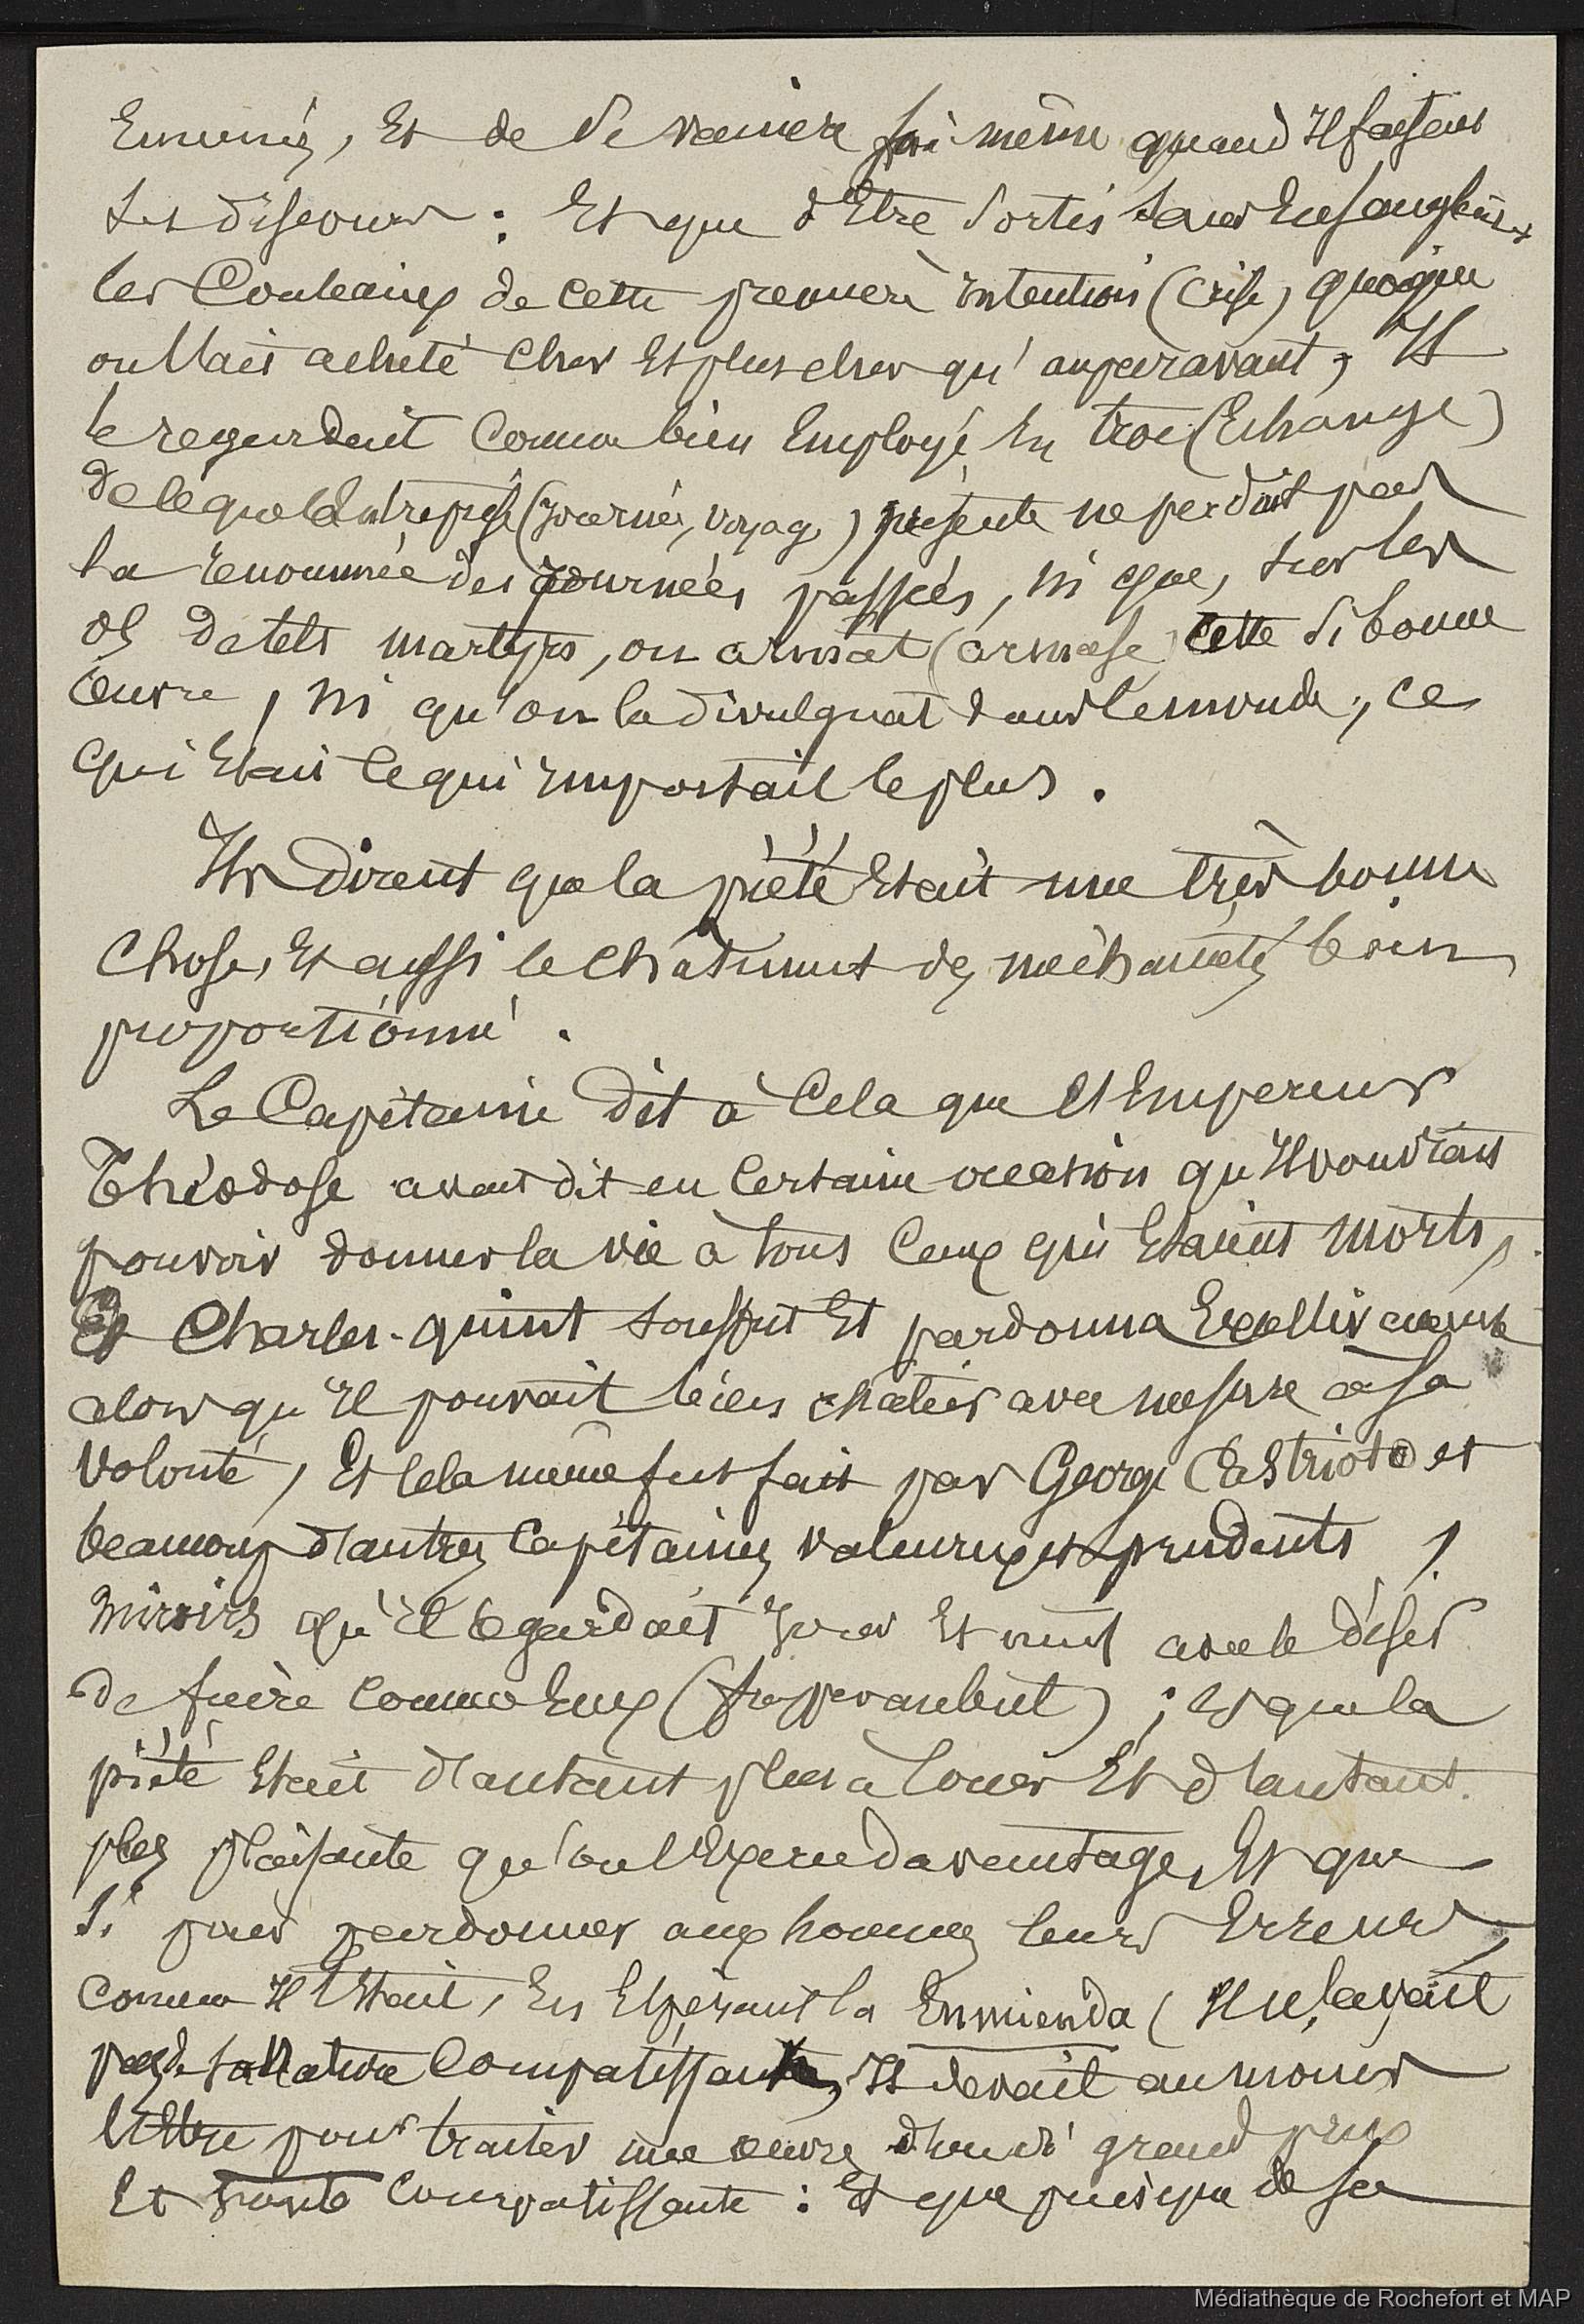 Ennemis, Et de se vaincre soi même quand Il faisait
des discours : Et que d'Etre sortis sans Ensanglanter
les Couteaux de cette première intention (crise) quoique
on l'ait acheté cher Et plus cher qu'auparavant, Il
le regardait comme bien Employé En troc (Echange)
de ce que l'Entreprise (Journée, voyage) présente ne perdait pas
la renommée des journées passées, ni que, sur les
os de tels martyrs, on armât (armase) cette si bonne
œuvre, ni qu'on la divulguat dans le monde, ce
qui Etait ce qui Importait le plus.
Ils Dirent que la piété Etait une très bonne
Chose, Et aussi le châtiment des méchancetés bien
proportionné.
Le Capitaine Dit à Cela que l'Empereur
Théodose avait dit en Certaine occasion qu'Il voudrait
pouvoir donner la vie à tous Ceux qui Etaient morts,
Et Charles-quint souffrit Et pardonna
alors qu'Il pouvait bien châtier avec mesure à sa
Volonté, Et Cela même fut fait par George Castrioto et
beaucoup d'autres Capitaines valeureux et prudents,
Miroirs qu'Il regardait Jour Et nuit avec le désir
de faire comme Eux ; Et que la
piété Etait d'autant plus à louer Et d'autant
plus plaisante qu'on l'Exerce davantage, Et que
Si pour pardonner aux hommes leurs Erreurs,
comme Il l'Etait, En Espérant la Enmienda ( Il ne l'avait
pas de sa Nature Compatissante, Il devait au moins
l'Etre pour traiter une œuvre d'un si grand prix
Et toute Compatissante : Et que puisque de sa
Médiathèque de Rochefort et MAP